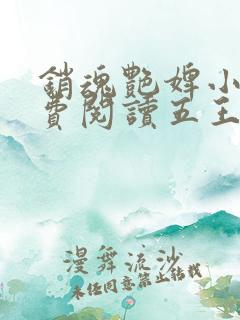 銷魂艷婢小
費閱讀五王
漫舞流沙
未經同意禁止轉載